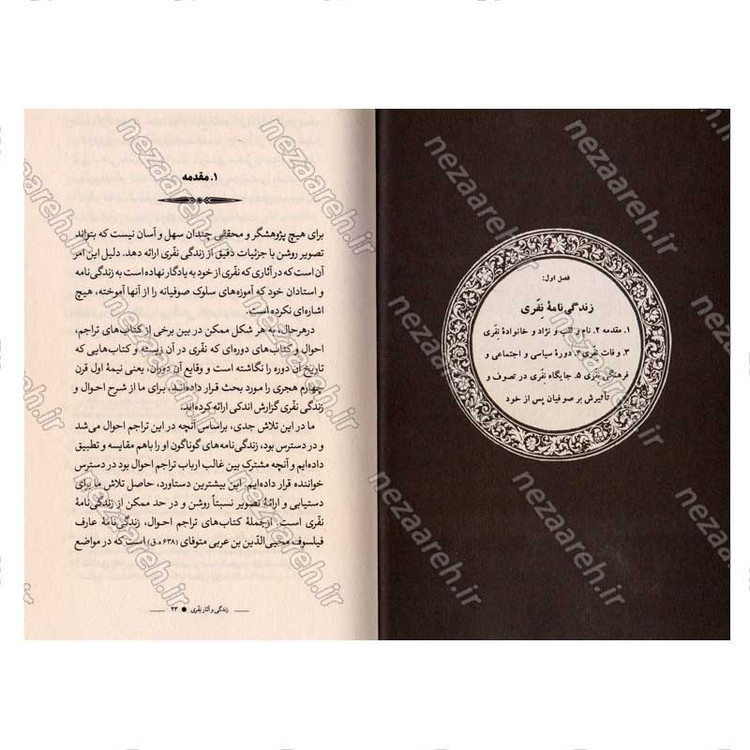 فصل اول:
زندگی‌نامهٔ نِفّری
۱. مقدمه ۲. نام و لقب و نژاد و خانوادهٔ نِفّری
۳. وفات نِفّری ۴. دورهٔ سیاسی و اجتماعی و
فرهنگی نِفّری ۵. جایگاه نِفّری در تصوف و
تأثیرش بر صوفیان پس از خود
۱. مقدمه
برای هیچ پژوهشگر و محققی چندان سهل و آسان نیست که بتواند
تصویر روشن با جزئیات دقیق از زندگی نفّری ارائه دهد. دلیل این امر
آن است که در آثاری که نفّری از خود به یادگار نهاده است به زندگی‌نامه
و استادان خود که آموزه‌های سلوک صوفیانه را از آنها آموخته، هیچ
اشاره‌ای نکرده است.
درهرحال، به هر شکل ممکن در بین برخی از کتاب‌های تراجم،
احوال و کتاب‌های دوره‌ای که نفّری در آن زیسته و کتاب‌هایی که
تاریخ آن دوره را نگاشته است و وقایع آن دوران، یعنی نیمهٔ اول قرن
چهارم هجری را مورد بحث قرار داده‌اند، برای ما از شرح احوال و
زندگی نفّری گزارش اندکی ارائه کرده‌اند.
ما در این تلاش جدی، براساس آنچه در این تراجم احوال می‌شد
و در دسترس بود، زندگی‌نامه‌های گوناگون او را باهم مقایسه و تطبیق
داده‌ایم و آنچه مشترک بین غالب ارباب تراجم احوال بود در دسترس
خواننده قرار داده‌ایم. این بیشترین دستاورد، حاصل تلاش ما برای
دستیابی و ارائهٔ تصویر نسبتاً روشن و در حد ممکن از زندگی‌نامهٔ
نفّری است. ازجملهٔ کتاب‌های تراجم احوال، زندگی‌نامهٔ عارف
فیلسوف محیی‌الدّین بن عربی متوفای (۶۳۸ ه.ق) است که در مواضع
زندگی و آثار نِفّری ● ۲۳
nezaareh.ir